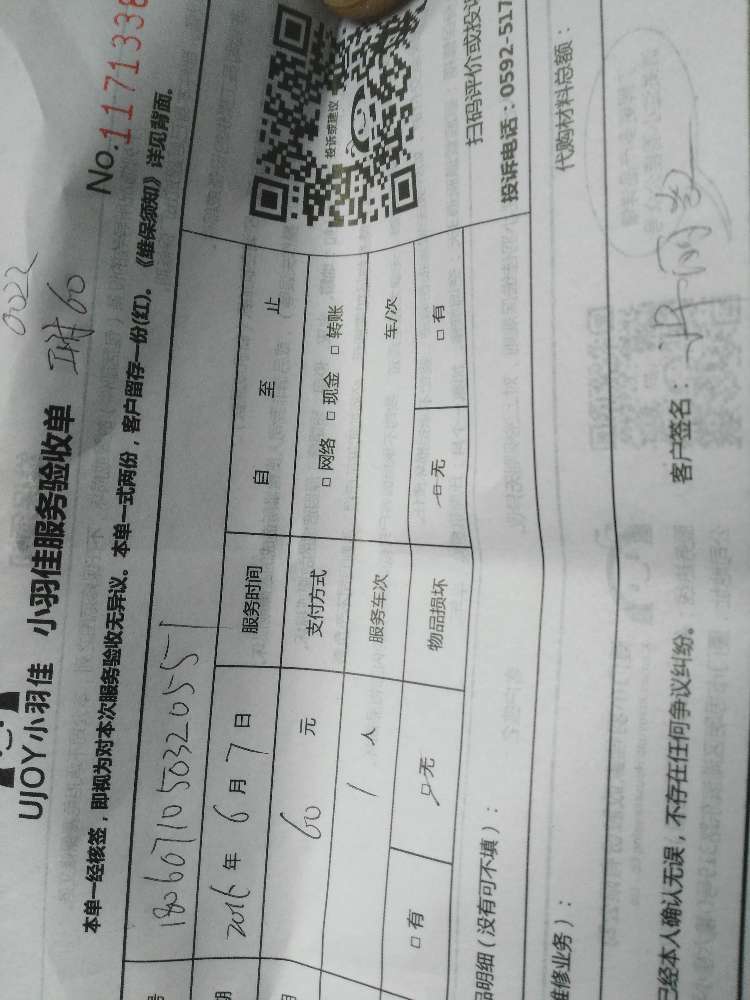 0022
UJOY小羽佳 小羽佳服务验收单
60
No.1171338
本单一经核签，即视为对本次服务验收无异议。本单一式两份，客户留存一份(红)。《维保须知》详见背面。
号 180607105032055 1
期 2016年6月7日 服务时间 自 至 止
用 60 元 支付方式 □网络 □现金 □转账
1 人 服务车次 车/次
□有 □无 物品损坏 □无 □有
投诉或建议
扫码评价或投诉
投诉电话：0592-517
品明细（没有可不填）：
代购材料总额：
维修业务）：
已经本人确认无误，不存在任何争议纠纷。 客户签名：